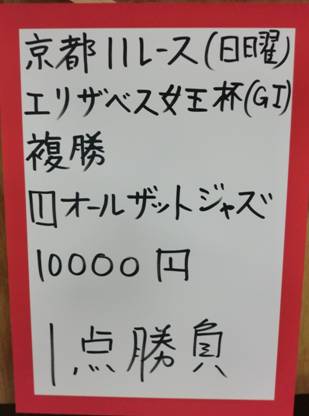 京都11レース(日曜)
エリザベス女王杯(GI)
複勝
①オールザットジャズ
10000円
1点勝負